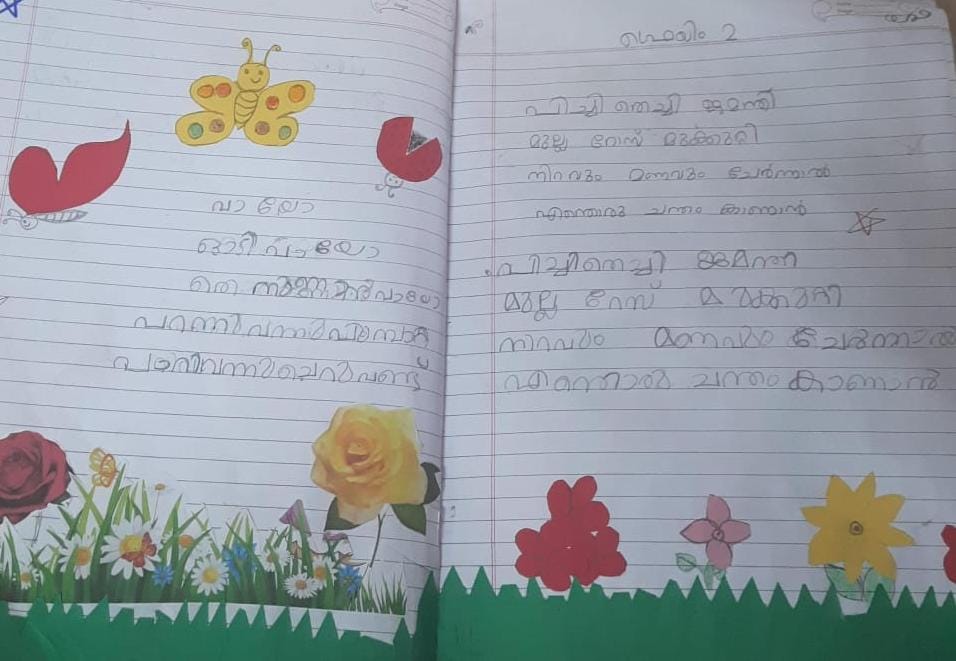 വാ യോ
ഓടി വാ യോ
പറന്നു വന്നു
പാറിവന്നു ചെറുവണ്ട്
ഫ്രെയിം 2
പിച്ചി തെച്ചി ജമന്തി
മുല്ല റോസ് മുക്കുറ്റി
നിറവും മണവും ചേർന്നാൽ
എന്തൊരു ചന്തം കാണാൻ
പിച്ചിതെച്ചി ജമന്തി
മുല്ല റോസ് മുക്കുറ്റി
നിറവും മണവും ചേർന്നാൽ
എന്തൊരു ചന്തം കാണാൻ